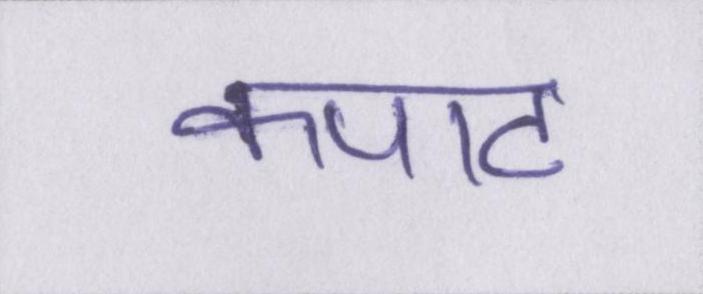 कपाट